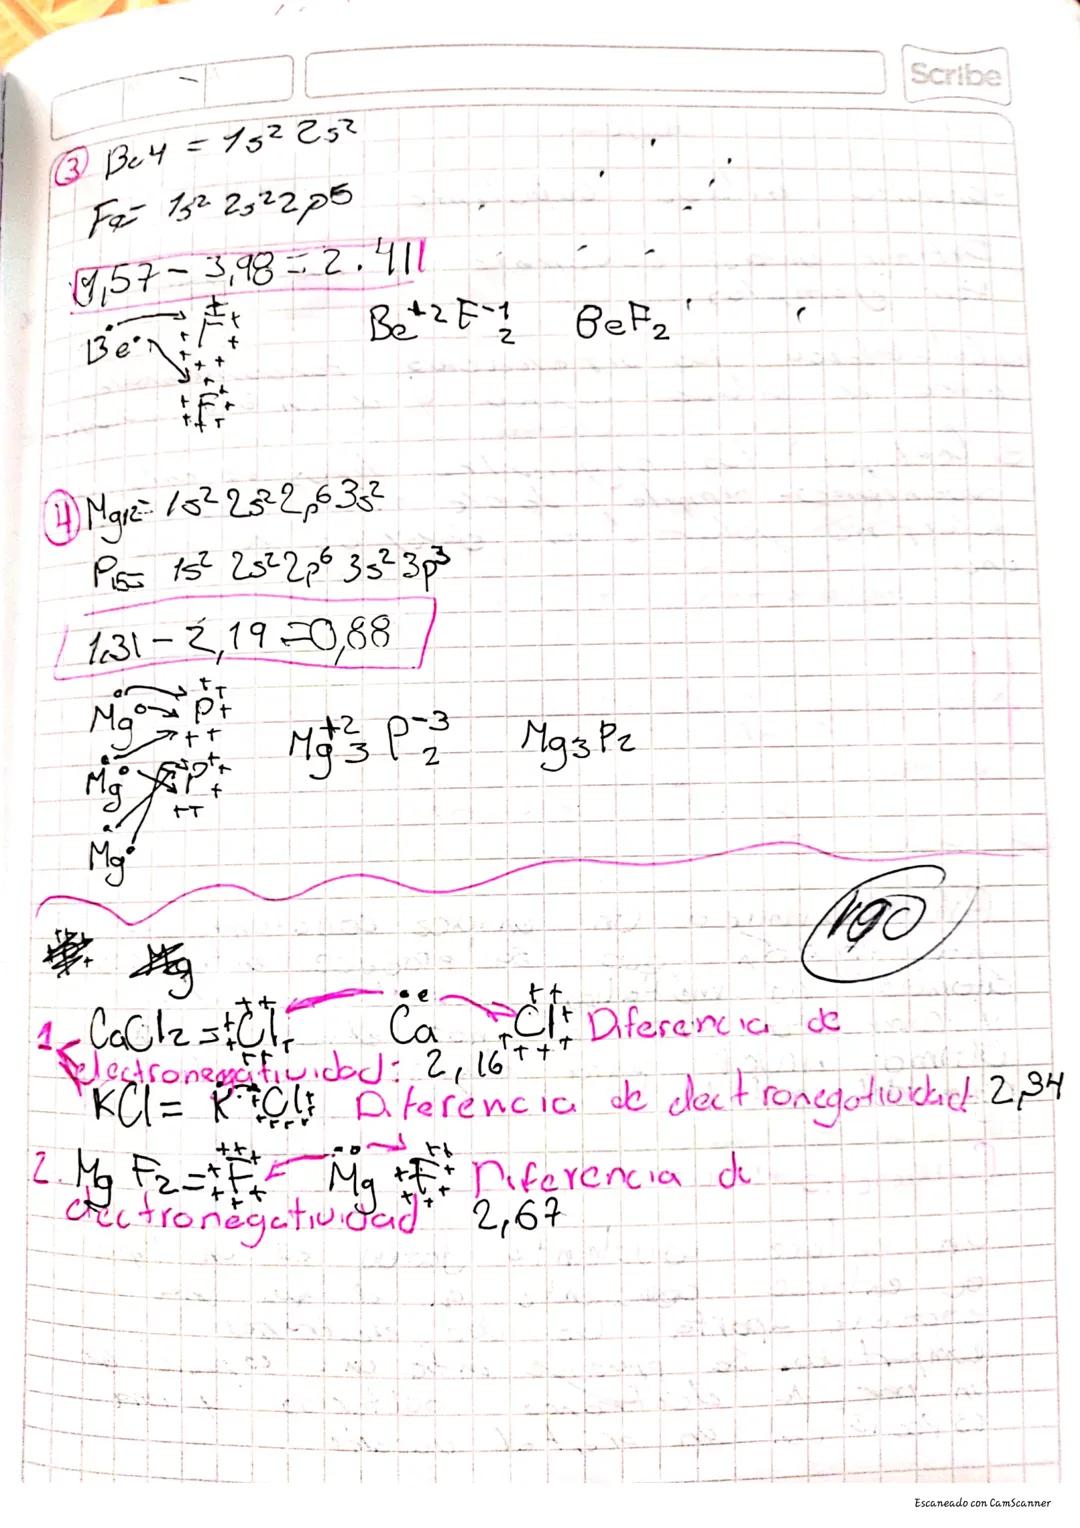 Scribe
③ Be4 = 1s² 2s²
F9= 1s² 2s² 2p5
1,57 - 3,98 = 2.41
Be F Be⁺² F⁻¹₂ BeF₂
F
④ Mg12= 1s² 2s² 2p⁶ 3s²
P15= 1s² 2s² 2p⁶ 3s² 3p³
1.31 - 2,19 = 0,88
Mg P
Mg⁺²₃ P⁻³₂ Mg₃P₂
Mg P
Mg
Mg
1. CaCl2 = Cl Ca Cl Diferencia de
electronegatividad: 2,16
KCl = K Cl Diferencia de electronegatividad 2,34
2. Mg F2 = F Mg F Diferencia de
electronegatividad 2,67
Escaneado con CamScanner